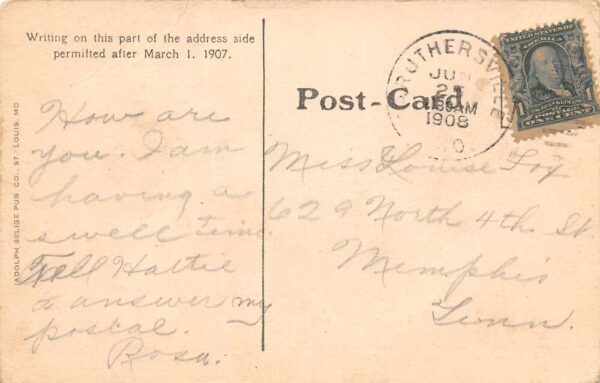 Writing on this part of the address side
permitted after March 1, 1907.
ADOLPH SELIGE PUB. CO., ST. LOUIS, MO
Post-Card
CARUTHERSVILLE
JUN
1908
MO.
UNITED STATES OF
AMERICA
FRANKLIN
1 1
ONE CENT
How are
you. I am
having a
swell time.
Tell Hattie
to answer my
postal.
Rosa.
Miss Louise Fox
629 North 4th. St.
Memphis
Tenn.